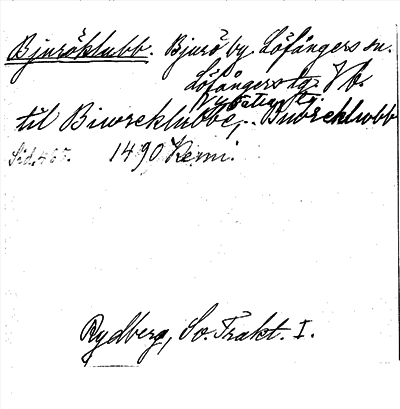 Bjuröklubb. Bjurö by Löfångers sn.
Löfångers tg. Vb.
til Biwreklubbe, Biureklubb
Sid. 465. 1490 Kemi.
Rydberg, Sv. Trakt. I.